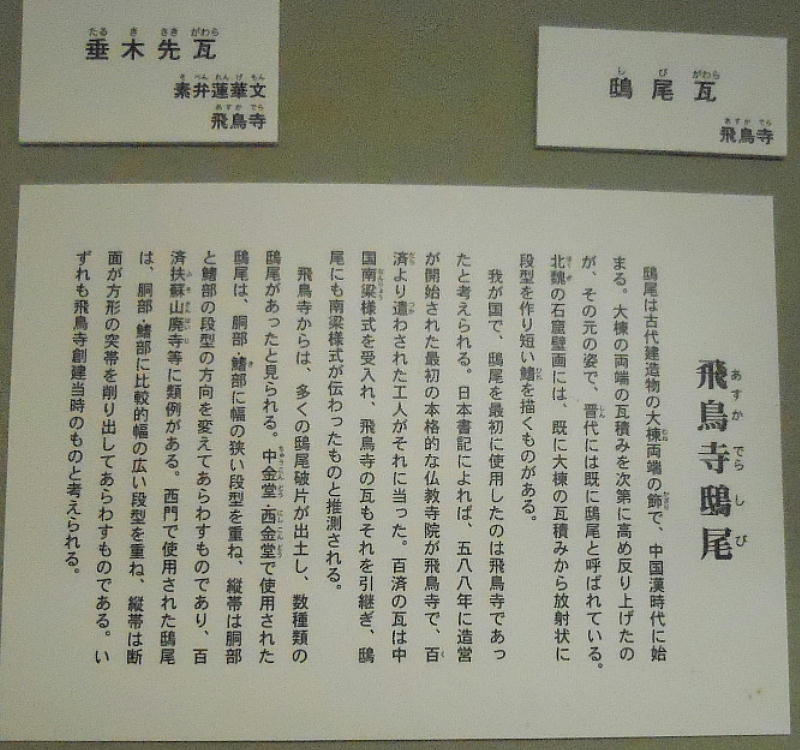 垂木先瓦
素弁蓮華文
飛鳥寺
鴟尾瓦
飛鳥寺
飛鳥寺鴟尾
鴟尾は古代建造物の大棟両端の飾で、中国漢時代に始
まる。大棟の両端の瓦積みを次第に高め反り上げたの
が、その元の姿で、晋代には既に鴟尾と呼ばれている。
北魏の石窟壁画には、既に大棟の瓦積みから放射状に
段型を作り短い鰭を描くものがある。
我が国で、鴟尾を最初に使用したのは飛鳥寺であっ
たと考えられる。日本書記によれば、五八八年に造営
が開始された最初の本格的な仏教寺院が飛鳥寺で、百
済より遣わされた工人がそれに当った。百済の瓦は中
国南梁様式を受入れ、飛鳥寺の瓦もそれを引継ぎ、鴟
尾にも南梁様式が伝わったものと推測される。
飛鳥寺からは、多くの鴟尾破片が出土し、数種類の
鴟尾があったと見られる。中金堂・西金堂で使用された
鴟尾は、胴部・鰭部に幅の狭い段型を重ね、縦帯は胴部
と鰭部の段型の方向を変えてあらわすものであり、百
済扶蘇山廃寺等に類例がある。西門で使用された鴟尾
は、胴部・鰭部に比較的幅の広い段型を重ね、縦帯は断
面が方形の突帯を削り出してあらわすものである。い
ずれも飛鳥寺創建当時のものと考えられる。